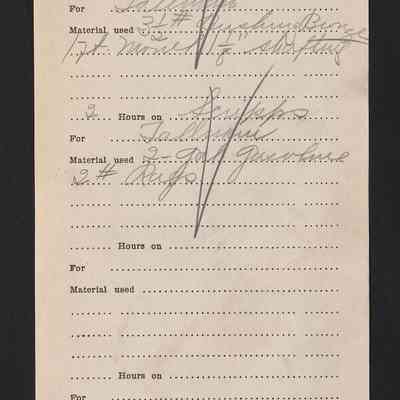 For Tallman
Material used 3½ # Bushing Bronze
17ft Monel 1⅛" shafting
2 Hours on Scripps
For Tallman
Material used 2 - gal gasoline
2 # Rags
Hours on
For
Material used
Hours on
For